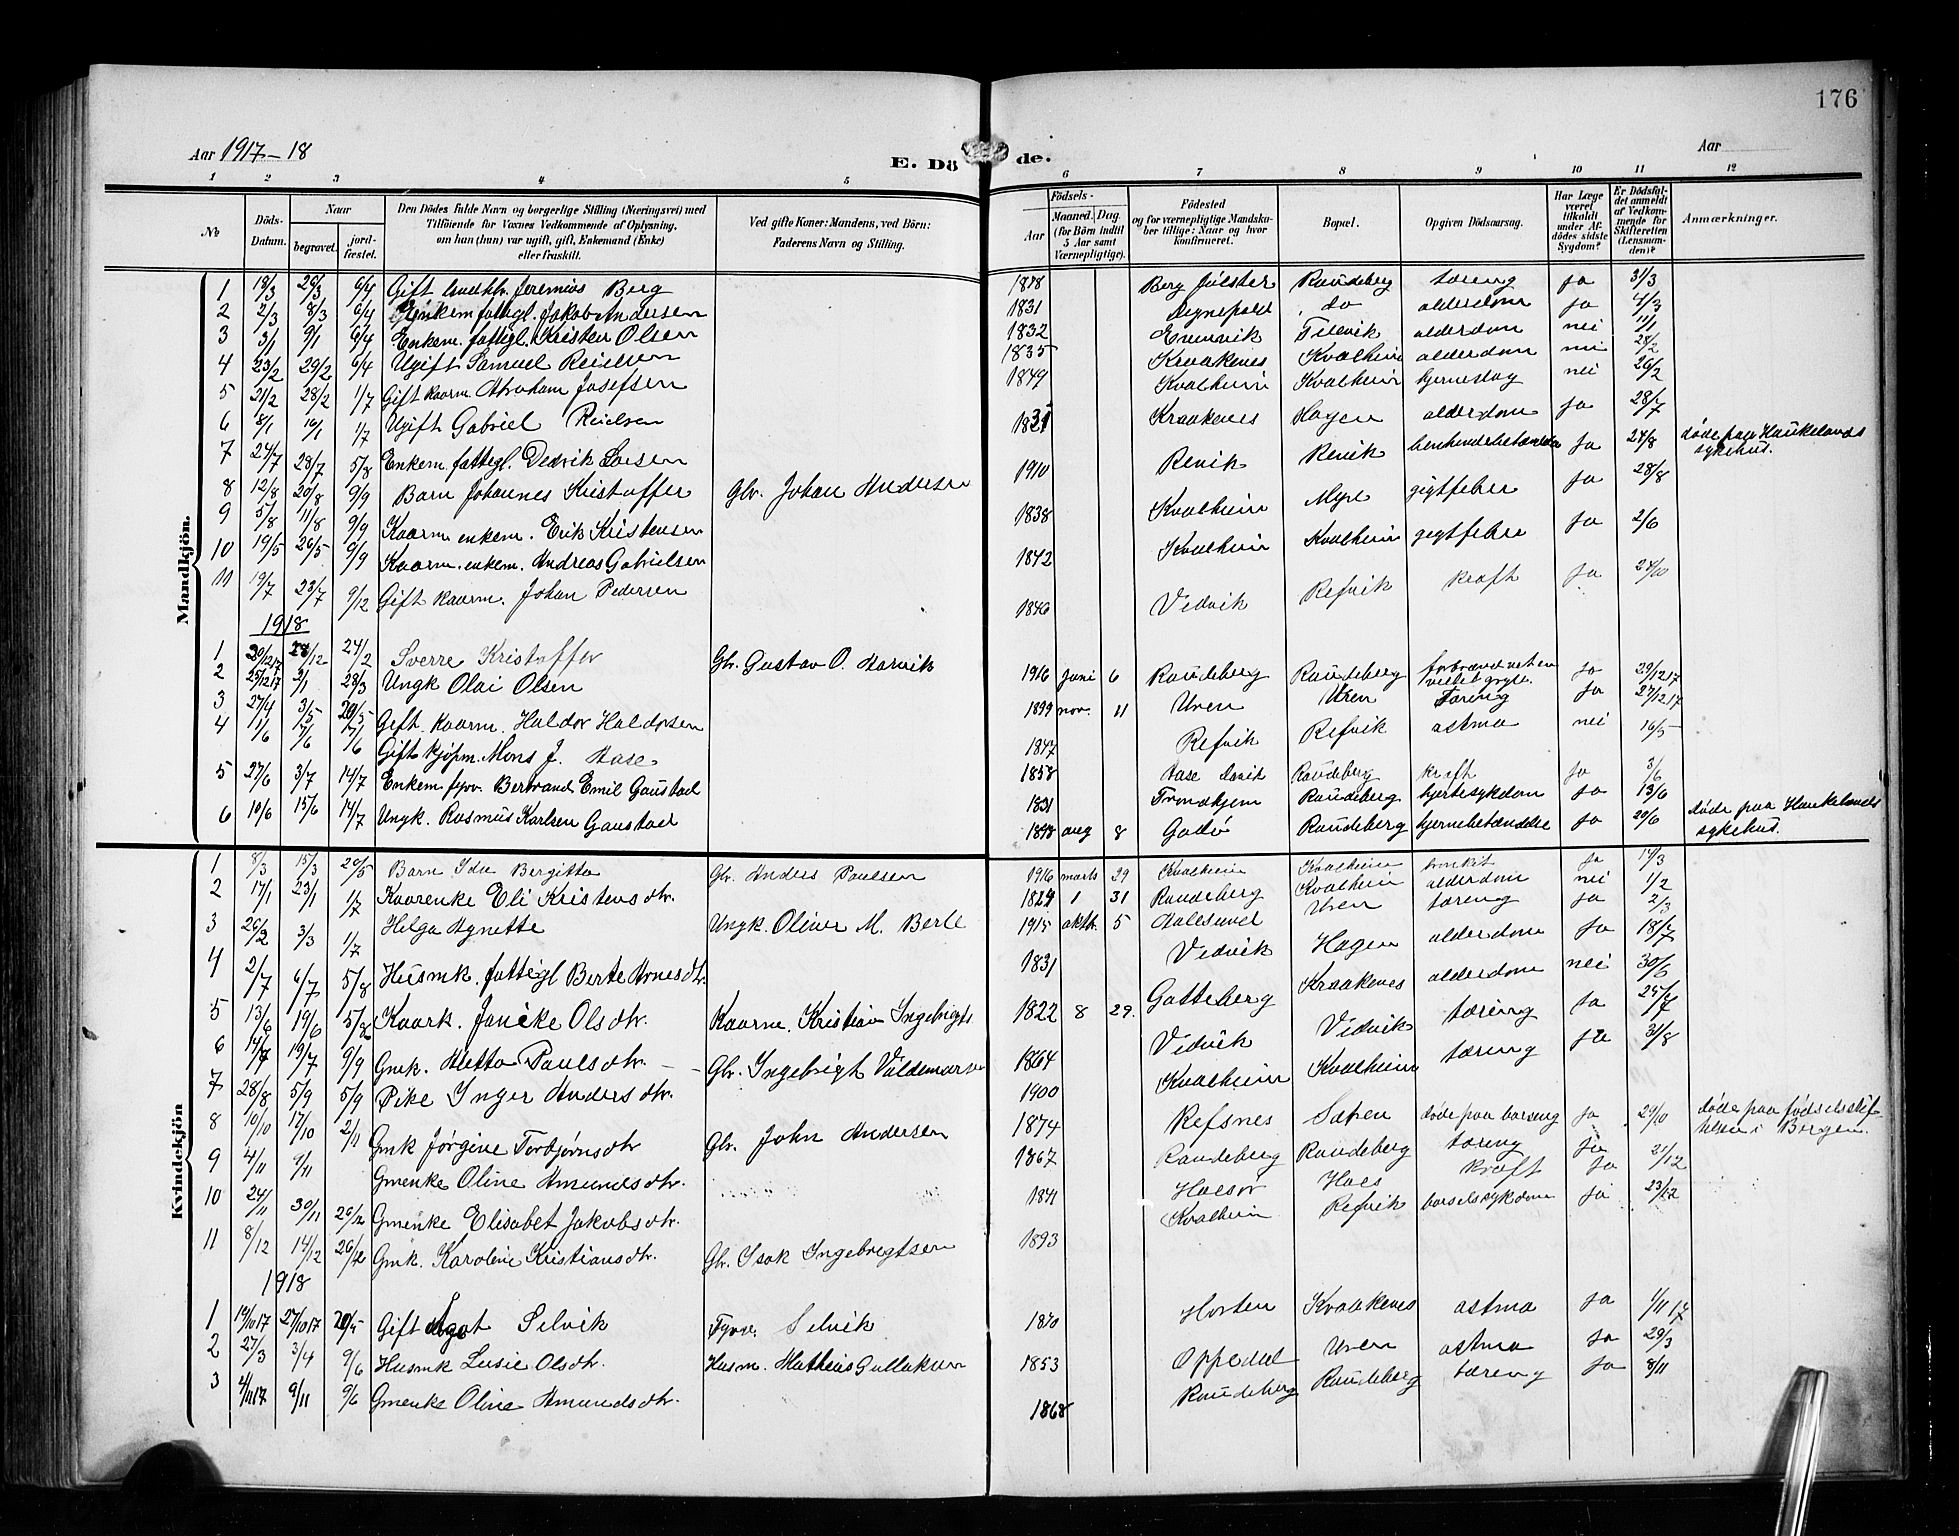 176
Aar 1917-18
E. Dö de.
Aar
1 2 3 4 5 6 7 8 9 10 11 12
No
Döds-Datum.
Naar
begravet.
jord-fæstet.
Den Dödes fulde Navn og borgerlige Stilling (Næringsvei) med Tilföiende for Voxnes Vedkommende af Oplysning, om han (hun) var ugift, gift, Enkemand (Enke) eller fraskilt.
Ved gifte Koner: Mandens, ved Börn: Faderens Navn og Stilling.
Födsels-
Aar
Maaned. Dag.
(for Börn indtil 5 Aar samt Værnepligtige).
Födested og for værnepligtige Mandskaber tillige: Naar og hvor konfirmeret.
Bopæl.
Opgiven Dödsaarsag.
Har Læge været tilkaldt under Afdödes sidste Sygdom?
Er Dödsfaldet anmeldt af Vedkommende for Skifteretten (Lensmanden)?
Anmærkninger.
Mandkjön.
1 18/3 29/3 6/4 Gift Jeremias Berg 1878 Berg Jølster Raudeberg tæring ja 31/3
2 2/3 8/3 6/4 Enkem. fattigl. Jakob Andersen 1831 do alderdom ja 4/3
3 3/1 9/1 6/4 Enkem. fattigl. Kristen Olsen 1832 alderdom nei 11/1
4 23/2 29/2 6/4 Ugift Samuel Reielsen 1835 Kraakenes Kvalheim alderdom nei 28/2
5 21/2 28/2 1/7 Gift kaarm. Abraham Josefsen 1849 Kvalheim Kvalheim hjerneslag nei 26/2
6 8/1 16/1 1/7 Ugift Gabriel Reielsen 1831 Kraakenes Hagen alderdom ja 28/7
7 24/7 28/7 5/8 Enkem. fattigl. Dedrik Larsen 1910 Revik Revik ja 24/8 døde paa Haukelands sykehus.
8 12/8 20/8 9/9 Barn Johannes Kristoffer Gbr. Johan Andersen 1838 Kvalheim Myre gigtfeber ja 28/8
9 5/8 11/8 9/9 Kaarm. enkem. Erik Kristensen 1842 Kvalheim Kvalheim gigtfeber ja 2/6
10 19/5 26/5 9/9 Kaarm. enkem. Andreas Gabrielsen
11 19/7 23/7 9/12 Gift kaarm. Johan Pedersen 1846 Vedvik Refvik kræft ja 24/10
1918
1 20/12 17 28/12 24/2 Sverre Kristoffer Gbr. Gustav O. Harvik 1916 juni 6 Raudeberg Raudeberg ja 29/12 17
2 25/12 17 2/1 28/3 Ungk Olai Olsen 1899 nov. 11 Uren Uren Tæring ja 27/12 17
3 27/4 3/5 20/5 Gift kaarm. Haldor Haldorsen 1847 Refvik Refvik astma nei 16/5
4 1/6 7/6 Gift kjøpm. Mons J. Aase. 1858 Aase Raudeberg kræft ja 3/6
5 27/6 3/7 14/7 Enkem. fyrv. Bertrand Emil Gaustad 1831 Trondhjem Raudeberg hjertesykdom ja 13/6
6 10/6 15/6 14/7 Ungk. Rasmus Karlsen Gaustad 1898 aug 8 Godø Raudeberg hjernebetændelse ja 20/6 døde paa Haukelands sykehus.
Kvindekjön
1 8/3 15/3 20/5 Barn Ida Bergitta Gbr. Anders Paulsen 1916 marts 29 Kvalheim Kvalheim bronkit ja 14/3
2 17/1 23/1 1/7 Kaarenke Eli Kristensdtr. 1829 1 31 Raudeberg Kvalheim alderdom nei 1/2
3 26/2 3/3 1/7 Helga Agnette Ungk. Oliver M. Berle 1915 oktbr. 5 Aalesund Uren tæring ja 2/3
4 2/7 6/7 5/8 Husmk. fattigl Berte Arnesdtr. 1831 Vedvik Hagen alderdom ja 18/7
5 13/6 19/6 5/8 Kaark. Janike Olsdtr. Kaarm. Kristian Ingebrigts 1822 8 29. Gotteberg Kraakenes alderdom nei 30/6
6 14/7 19/7 9/9 Gmk. Aletta Paulsdtr. Gbr. Ingebrigt Valdemarsen 1864 Vedvik Vedvik tæring ja 25/7
7 28/8 5/9 5/9 Pike Inger Andersdtr. 1900 Kvalheim Kvalheim tæring ja 31/8
8 10/10 17/10 2/11 Gmk Jørgine Torbjørnsdtr Gbr. John Andersen 1874 Refsnes Sæten døde paa barseng ja 29/10 døde paa fødselsstiftelsen i Bergen.
9 4/11 9/11 Gmenke Oline Amundsdtr. 1867 Raudeberg Raudeberg tæring ja 21/12
10 24/11 30/11 26/12 Gmenke Elisabet Jakobsdtr. 1841 Kræft ja
11 8/12 14/12 26/12 Gmk. Karoline Kristiansdtr. Gbr. Isak Ingebrigtsen 1893 Kvalheim Refvik barselssykdom ja 23/12
1918
1 19/10 17 27/10 17 20/5 Gift Agot Selvik Fyrv. Selvik 1870 Horten Kraakenes astma ja 1/11 17
2 27/3 3/4 9/6 Husmk Lusie Olsdtr. Husm. Mathias Gullaksen 1853 Oppedal Uren astma ja 29/3
3 4/11 17 9/11 9/6 Gmenke Oline Amundsdtr. 1868 Raudeberg Raudeberg tæring ja 8/11